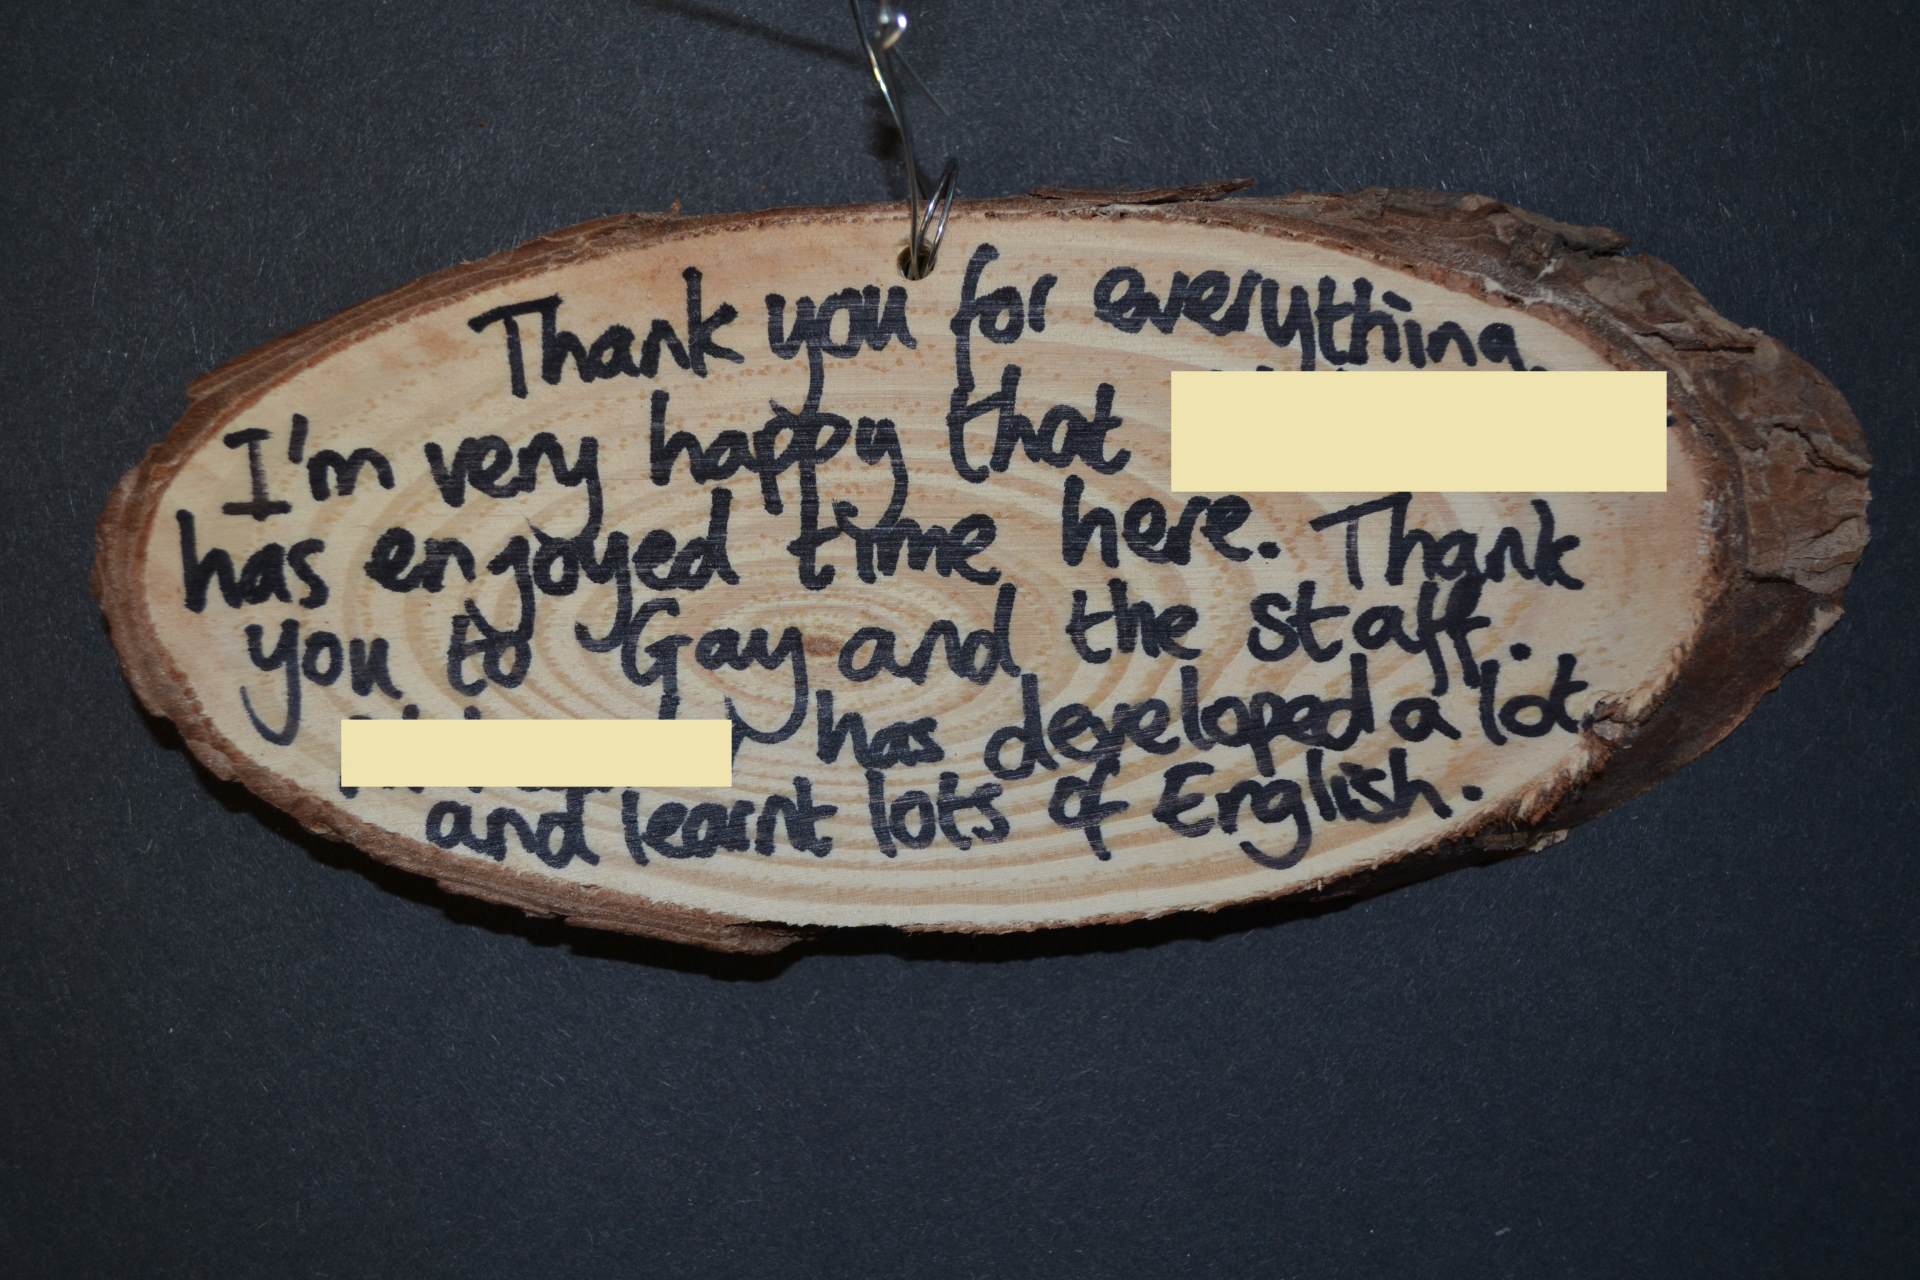 Thank you for everything
I'm very happy that
has enjoyed time here. Thank
you to Gay and the staff.
has developed a lot.
and learnt lots of English.